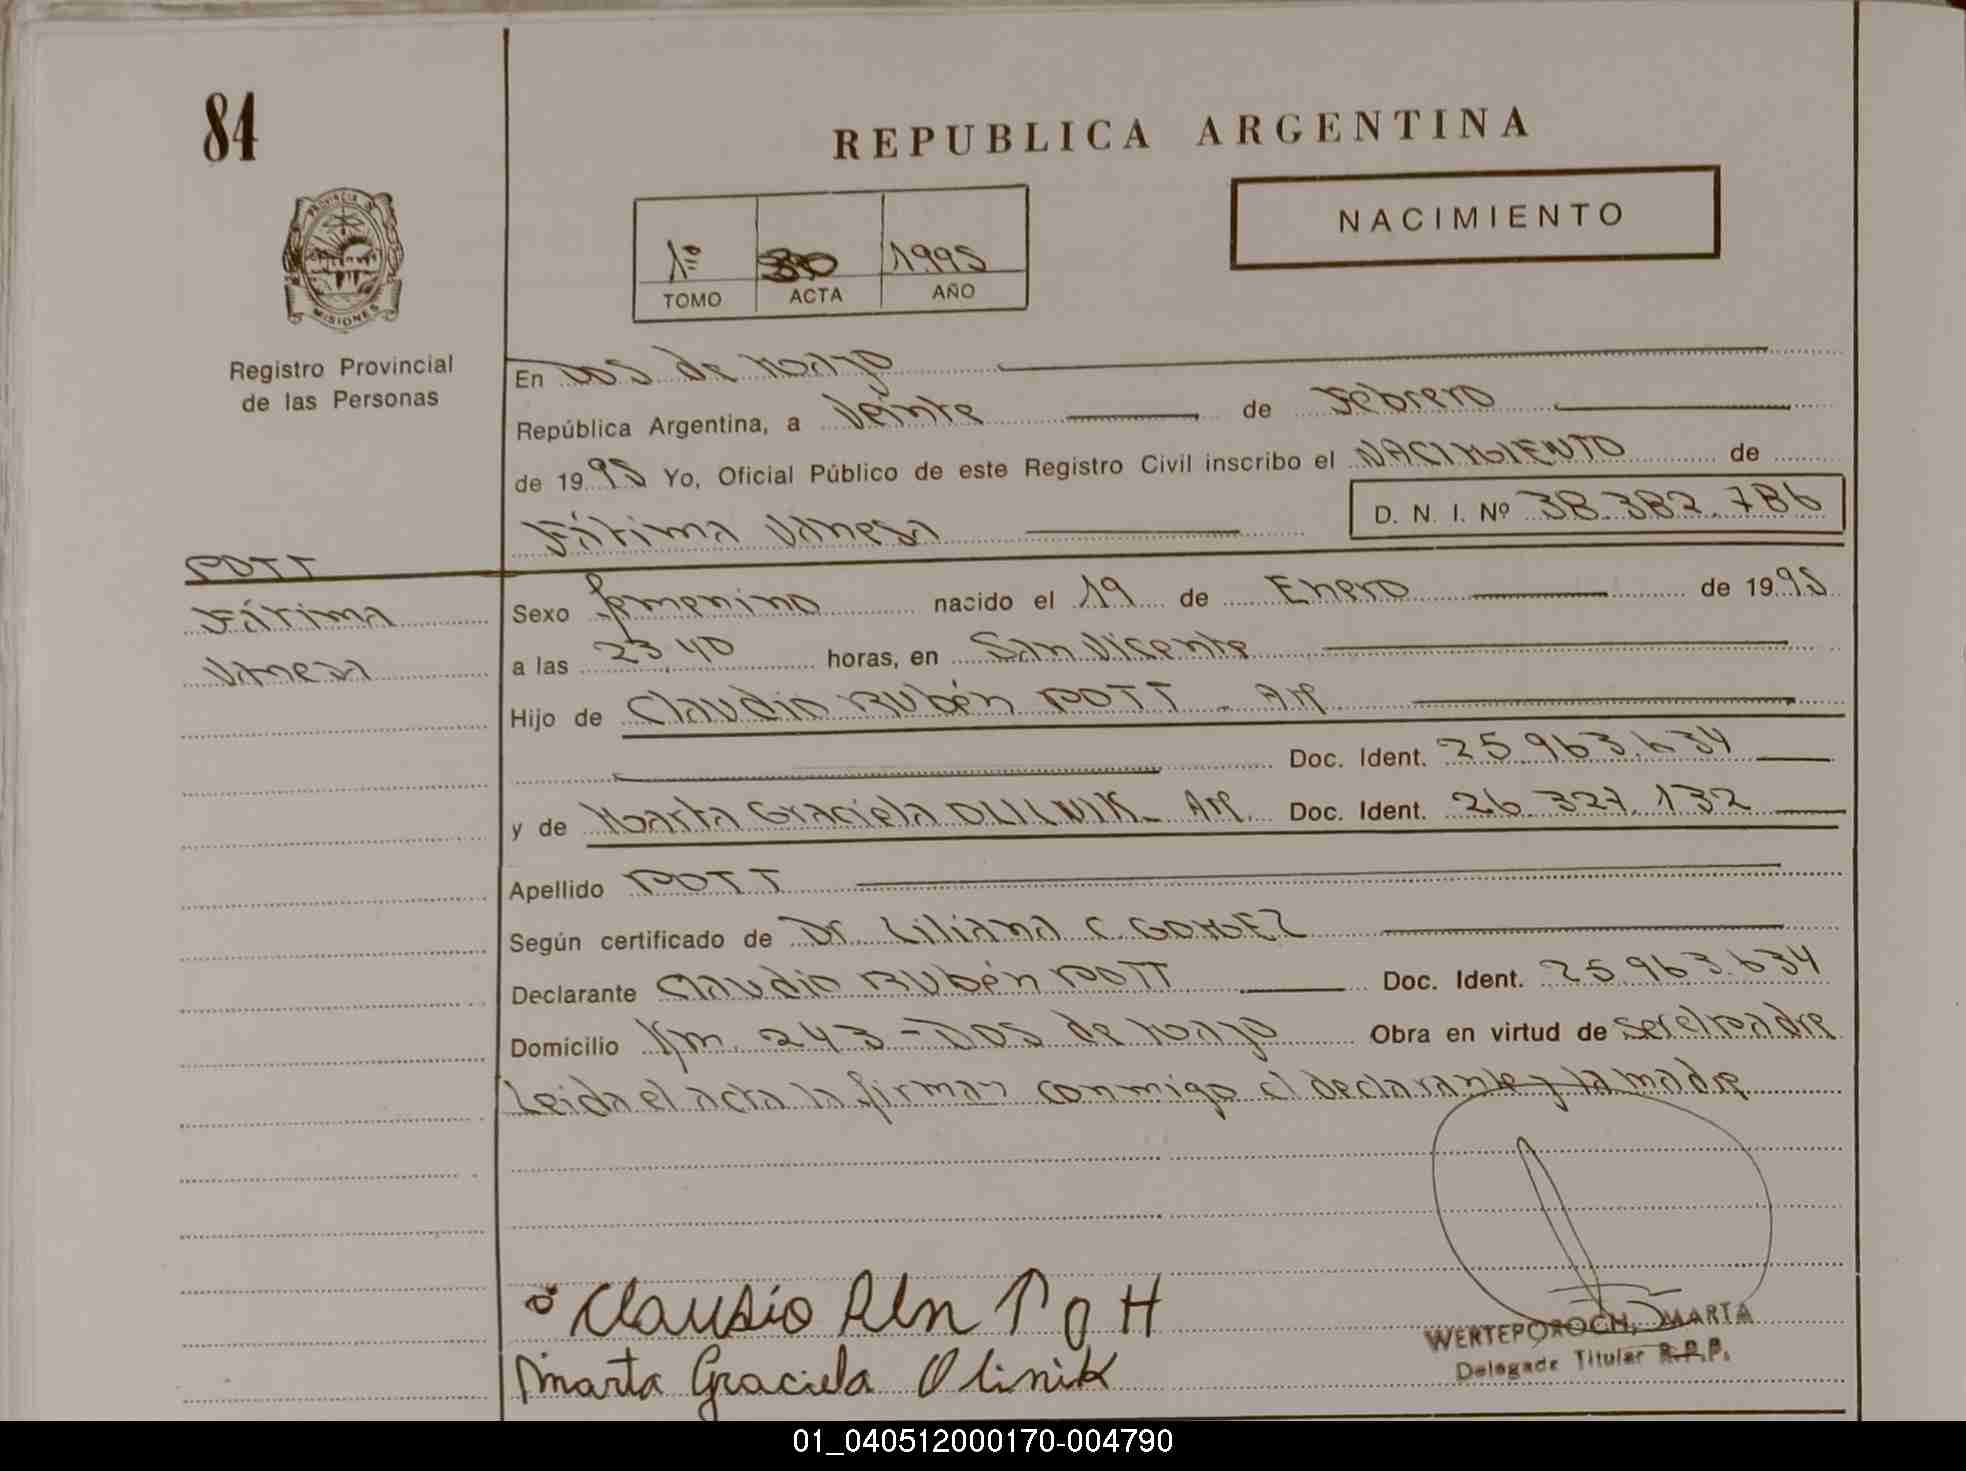 84
REPUBLICA ARGENTINA
PROVINCIA DE
MISIONES
Registro Provincial
de las Personas
1º 1995
TOMO ACTA AÑO
NACIMIENTO
En DOS de Mayo
República Argentina, a Veinte de Febrero
de 1995 Yo, Oficial Público de este Registro Civil inscribo el NACIMIENTO de
Fátima Vanesa D. N. I. Nº 38.382.786
POTT
Fátima
Vanesa
Sexo femenino nacido el 19 de Enero de 1995
a las 23,40 horas, en San Vicente
Hijo de Claudio Rubén POTT - Ar.
Doc. Ident. 25.963.634
y de Marta Graciela OLINIK - Ar. Doc. Ident. 26.327.132
Apellido POTT
Según certificado de Dr. Liliana C. GOMEZ
Declarante Claudio Rubén POTT Doc. Ident. 25.963.634
Domicilio Km. 243 - DOS de Mayo Obra en virtud de ser el padre
Leida el acta la firman conmigo el declarante y la madre
Claudio Rln Pott
Marta Graciela Olinik
WERTEPOROCH, MARTA
Delegade Titular R.P.P.
01_040512000170-004790